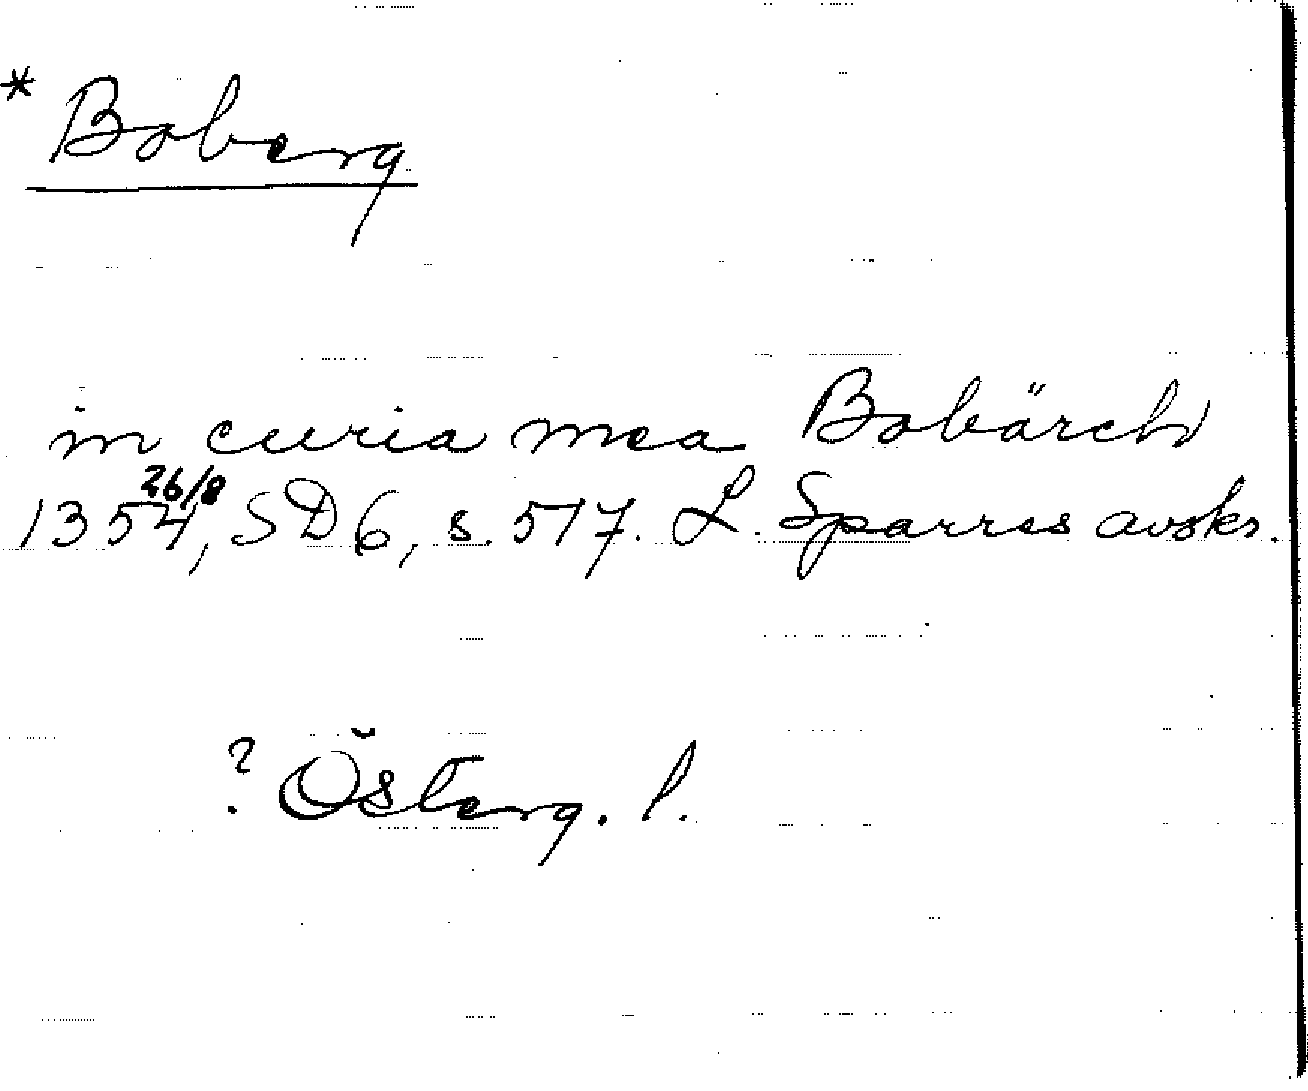 * Boberg
in curia mea Bobärch
1354 26/8, SD 6, s. 517. L. Sparres avskr.
? Österg. l.